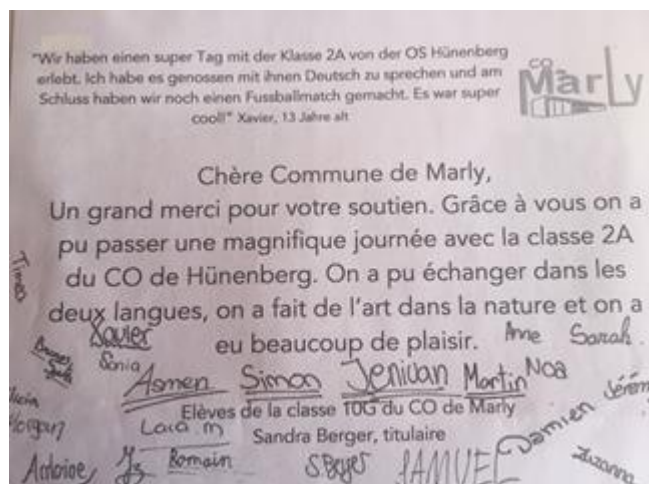 "Wir haben einen super Tag mit der Klasse 2A von der OS Hünenberg
erlebt. Ich habe es genossen mit ihnen Deutsch zu sprechen und am
Schluss haben wir noch einen Fussballmatch gemacht. Es war super
cool!" Xavier, 13 Jahre alt
CO
Marly
Chère Commune de Marly,
Un grand merci pour votre soutien. Grâce à vous on a
pu passer une magnifique journée avec la classe 2A
du CO de Hünenberg. On a pu échanger dans les
deux langues, on a fait de l'art dans la nature et on a
eu beaucoup de plaisir.
Timeo
Xavier
Anne Sarah
Sonia
Asmen Simon Jenivan Martin Noa
Elèves de la classe 10G du CO de Marly
Morgan
Lara.m
Sandra Berger, titulaire
Damien
Jérém
Antoine
Romain
S. Berger
SAMUEL
Zuzanna